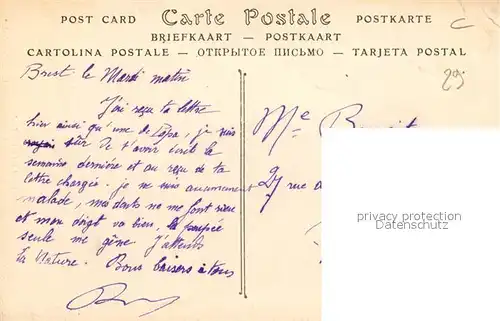 POST CARD Carte Postale POSTKARTE
BRIEFKAART — POSTKAART
CARTOLINA POSTALE — ОТКРЫТОЕ ПИСЬМО — TARJETA POSTAL
C
29
Brest le Mardi matin
J'ai reçu ta lettre
hier ainsi qu'une de Papa, je suis
sûr de t'avoir écrit la
semaine dernière et au reçu de ta
lettre chargée. je ne suis aucunement
malade, mes dents ne me font rien
et mon doigt va bien, la poupée
seule me gêne j'attends
la Nature. Bons baisers à tous
Me
27 rue
privacy protection
Datenschutz